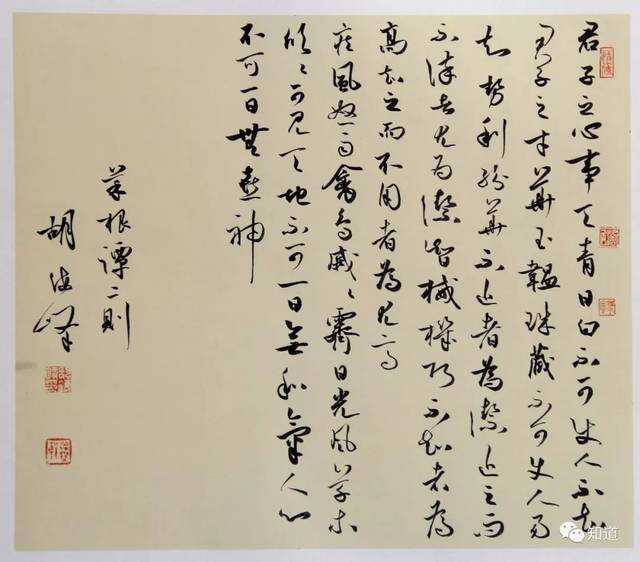 君子之心事天青日白不可使人不知
君子之才華玉韞珠藏不可使人易
知勢利紛華不近者為潔近之而
不染者尤為潔智械機巧不知者為
高知之而不用者為尤高
疾風怒雨禽鳥戚々霽日光風草木
欣々可見天地不可一日無和氣人心
不可一日無喜神
菜根譚二則
胡
知道